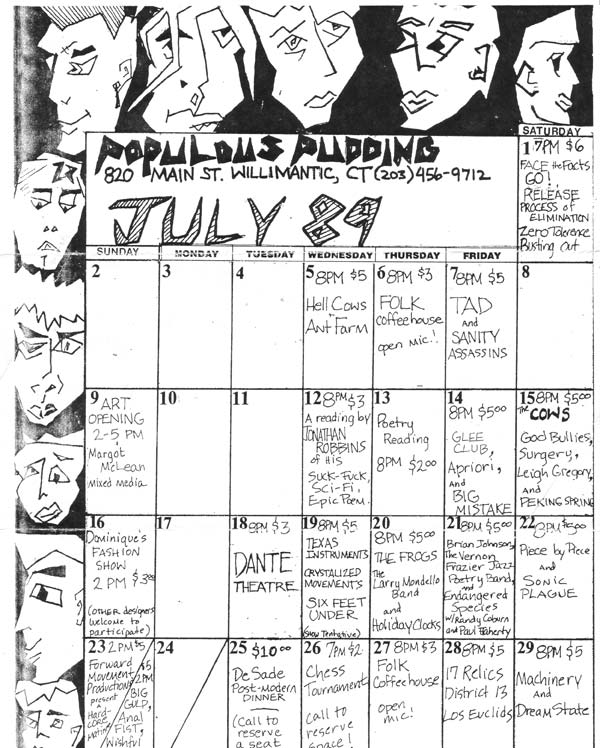 POPULOUS PUDDING
820 MAIN ST. WILLIMANTIC, CT (203) 456-9712
JULY 89
SATURDAY
1 7PM $6
FACE the Facts
GO!
RELEASE
PROCESS of
ELIMINATION
Zero Tolerence
Busting Out
SUNDAY MONDAY TUESDAY WEDNESDAY THURSDAY FRIDAY
2
3
4
5 8PM $5
Hell Cows
Ant Farm
6 8PM $3
FOLK
coffeehouse
open mic!
7 8PM $5
TAD
and
SANITY
ASSASSINS
8
9 ART
OPENING
2-5 PM
Margot
McLean
Mixed media
10
11
12 8PM $3
A reading by
JONATHAN
ROBBINS
of His
Suck-Fuck,
Sci-Fi,
Epic Poem.
13
Poetry
Reading
8PM $2.00
14
8PM $5.00
GLEE
CLUB,
Apriori,
AND
BIG
MISTAKE
15 8PM $5.00
THE COWS
God Bullies,
Surgery,
Leigh Gregory,
AND
PEKING SPRING
16
Dominique's
FASHION
SHOW
2 PM $3.00
(OTHER designers
welcome to
participate)
17
18 8PM $3
DANTE
THEATRE
19 8PM $5
TEXAS
INSTRUMENTS
CRYSTALIZED
MOVEMENTS
SIX FEET
UNDER
(Show Tentative)
20
8PM $5.00
THE FROGS
The
Larry Mondello
Band
and
Holiday Clocks
21 8PM $5.00
Brian Johnson,
The Vernon
Frazier Jazz
Poetry Band,
and
Endangered
Species
w/Randy Coburn
and Paul Flaherty
22 8PM
Piece by Piece
and
SONIC
PLAGUE
23 2PM $5
Forward
Movement
Productions
present
Hard-
CORE
Matinee
24
$5
2PM
BIG
GULP,
Anal
FIST,
Wishful
25 $10.00
De Sade
Post-modern
DINNER
(Call to
reserve
a seat
26 7PM $2
Chess
Tournament
call to
reserve
space!
27 8PM $3
Folk
Coffeehouse
open
mic!
28 8PM $5
17 Relics
District 13
Los Euclids
29 8PM $5
Machinery
AND
DreamState